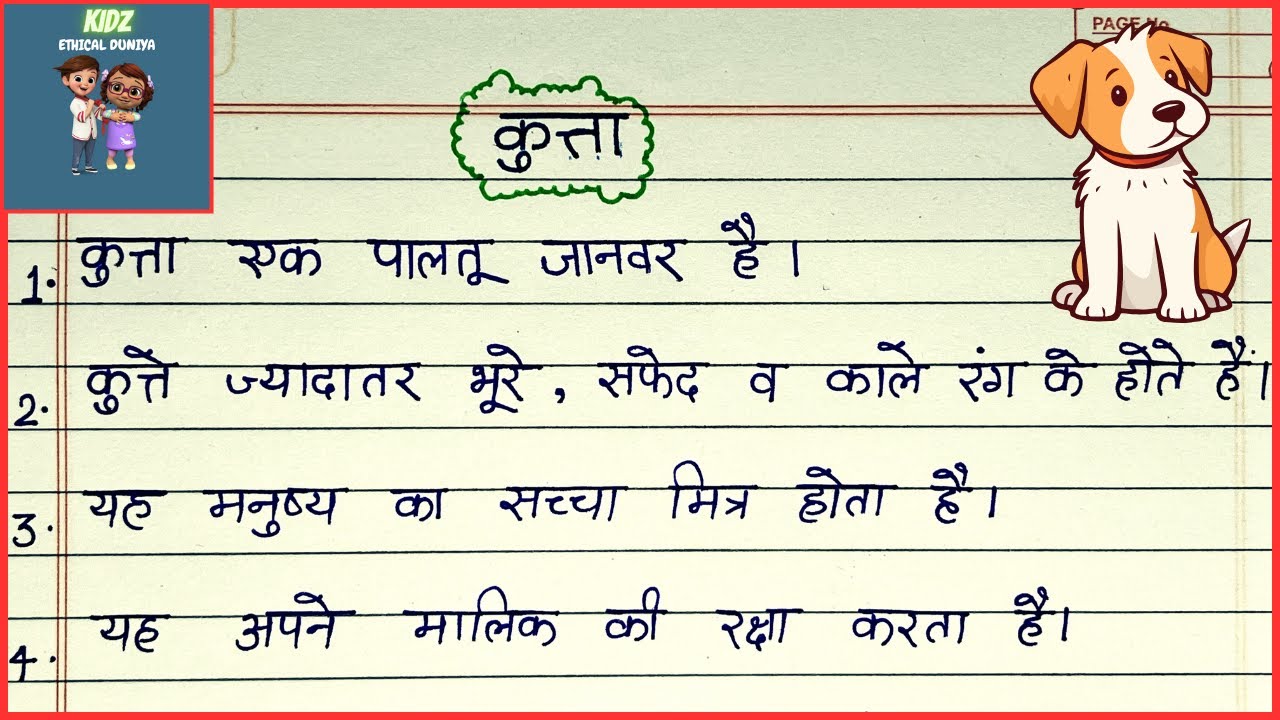 KIDZ
ETHICAL DUNIYA
PAGE No.
कुत्ता
1. कुत्ता एक पालतू जानवर है।
2. कुत्ते ज्यादातर भूरे, सफेद व काले रंग के होते हैं।
3. यह मनुष्य का सच्चा मित्र होता है।
4. यह अपने मालिक की रक्षा करता है।